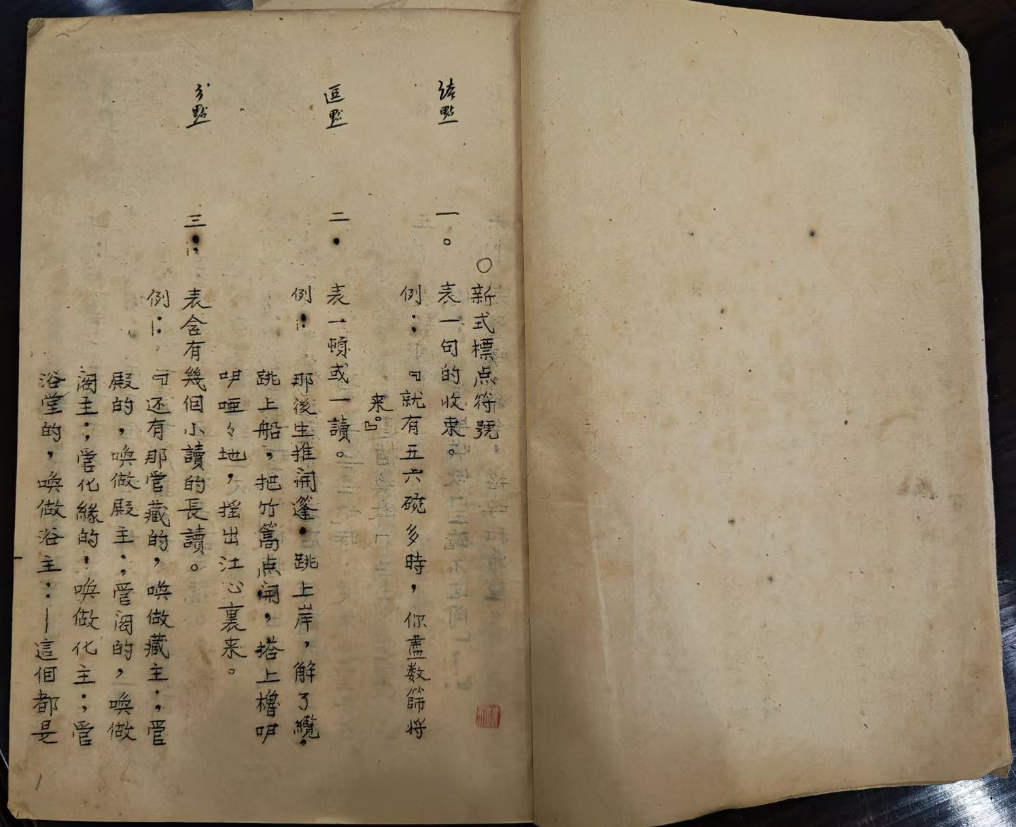 ○新式標点符號
結點
一。 表一句的收束。
例：『就有五六碗多時，你盡数篩将
来。』
逗點
二， 表一頓或一讀。
例： 那後生推開篷，跳上岸，解了纜，
跳上船，把竹篙点開，搭上櫓咿
咿唖々地，摇出江心裏来。
分點
三； 表含有幾個小讀的長讀。
例：『还有那管藏的，喚做藏主；管
殿的，喚做殿主；管阁的，喚做
阁主；管化緣的！喚做化主；管
浴堂的，喚做浴主：—這個都是
1